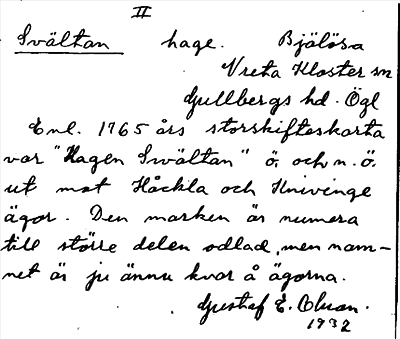 II
Svältan hage. Bjälösa
Vreta Kloster sn
Gullbergs hd. Ögl
Enl. 1765 års storskifteskarta
var "Hagen Swältan" ö. och n. ö.
ut mot Håckla och Knivinge
ägor. Den marken är numera
till större delen odlad, men nam-
net är ju ännu kvar å ägorna.
Gustaf E. Olson.
1932